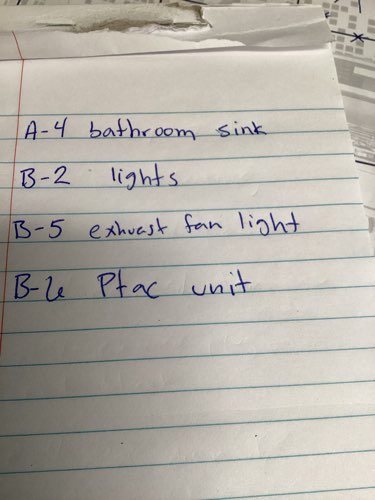 A-4 bathroom sink
B-2 lights
B-5 exhuest fan light
B-6 Ptac unit